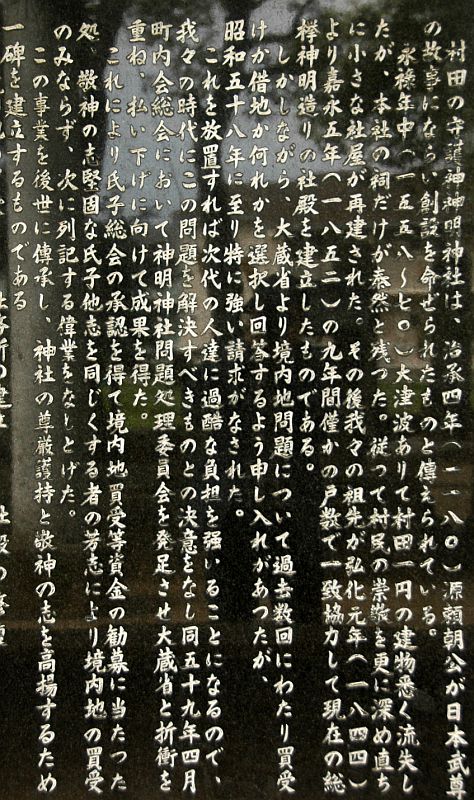 村田の守護神神明神社は、治承四年(一一八〇)源頼朝公が日本武尊
の故事にならい創設を命ぜられたものと傳えられている。
永祿年中(一五五八〜七〇)大津波ありて村田一円の建物悉く流失し
たが、本社の祠だけが泰然と残つた。従って村民の崇敬を更に深め直ち
に小さな社屋が再建された。その後我々の祖先が弘化元年(一八四四)
より嘉永五年(一八五二)の九年間僅かの戸数で一致協力して現在の総
欅神明造りの社殿を建立したものである。
しかしながら、大蔵省より境内地問題について過去数回にわたり買受
けか借地か何れかを選択し回答するよう申し入れがあつたが、
昭和五十八年に至り特に強い請求がなされた。
これを放置すれば次代の人達に過酷な負担を強いることになるので、
我々の時代にこの問題を解決すべきものとの決意をなし同五十九年四月
町内会総会において神明神社問題処理委員会を発足させ大蔵省と折衝を
重ね、払い下げに向けて成果を得た。
これにより氏子総会の承認を得て境内地買受等資金の勧募に当たつた
処、敬神の志堅固な氏子他志を同じくする者の芳志により境内地の買受
のみならず、次に列記する偉業をなしとげた。
この事業を後世に傳承し、神社の尊厳護持と敬神の志を高揚するため
一碑を建立するものである